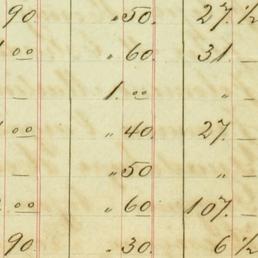 90 " 50. 27. ½
00 " 60. 31. —
— 1. 00 " —
00 " 40. 27. —
— " 50 " —
00 " 60 107. —
90. " 30. 6 ½